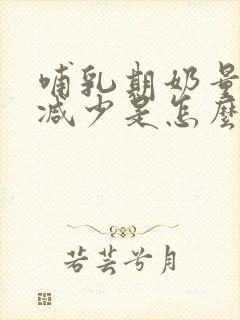 哺乳期奶量
减少是怎麼
若芸兮月